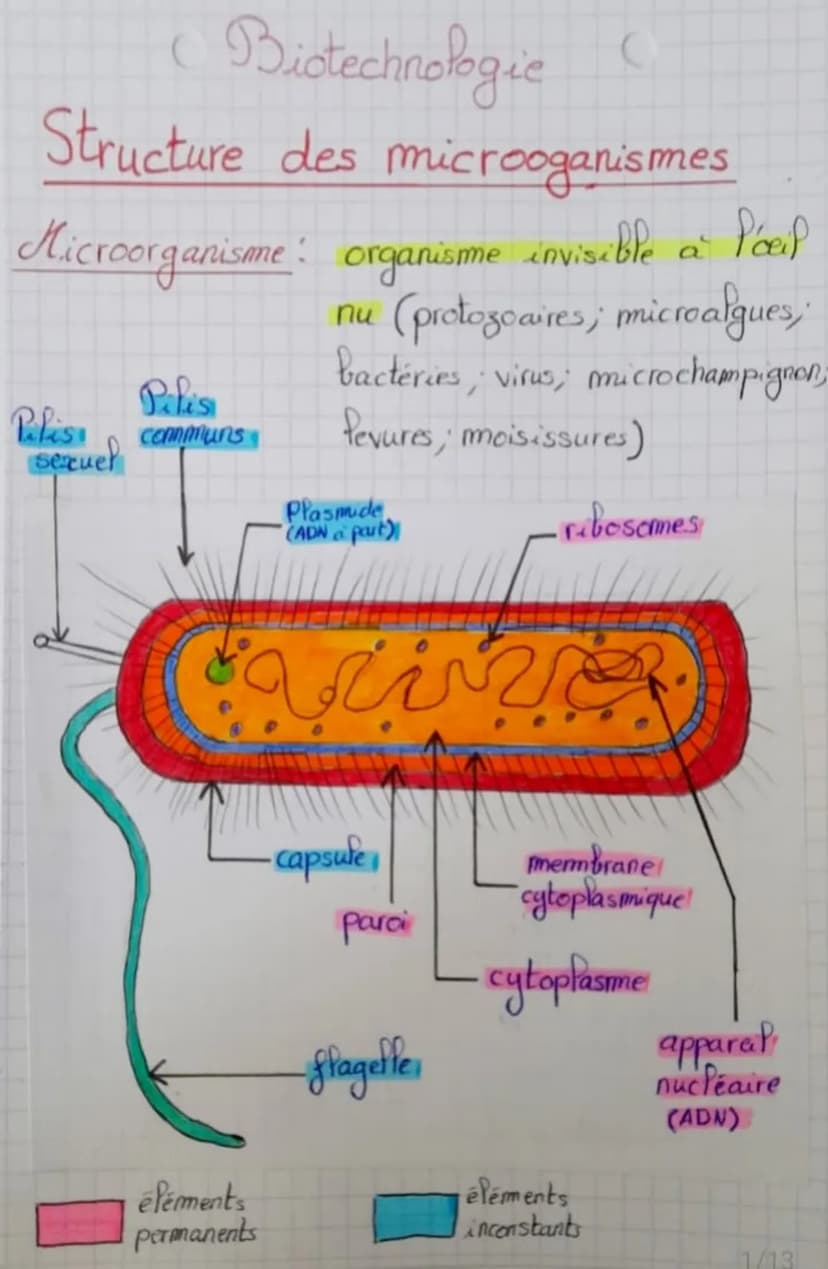 Biotechnologie
Structure des microoganismes
Microorganisme : organisme invisible à l'œil
nu (protozoaires ; microalgues ;
bactéries ; virus ; microchampignon ;
levures ; moisissures)
Pilis
sexuel
Pilis
communs
Plasmide
(ADN à part)
ribosomes
capsule
paroi
membrane
cytoplasmique
cytoplasme
flagelle
appareil
nucléaire
(ADN)
éléments
permanents
éléments
inconstants
1/13